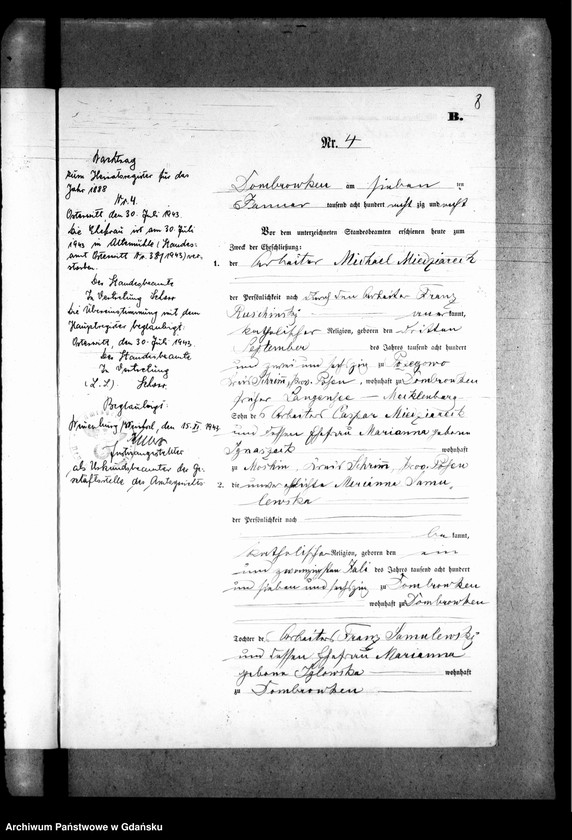 8
B.
Nr. 4
Dombrowken am sieben ten
Januar tausend acht hundert acht zig und acht.
Vor dem unterzeichneten Standesbeamten erschienen heute zum
Zweck der Eheschließung:
1. der Arbeiter Michael Miedziarek
der Persönlichkeit nach durch den Arbeiter Franz
Ruschinsky aner kannt,
katholischer Religion, geboren den dritten
September des Jahres tausend acht hundert
und zwei und sechszig zu
Kreis Schrim, Prov. Posen, wohnhaft zu Dombrowken
früher Langensee — Mecklenburg
Sohn des Arbeiters Caspar Miedziarek
und dessen Ehefrau Marianna geborene
Ignaszack wohnhaft
zu Kreis Schrim, Prov. Posen
2. die unverehelichte Marianna Samu
lewska
der Persönlichkeit nach
be kannt,
katholischer Religion, geboren den ein
und zwanzigsten Juli des Jahres tausend acht hundert
und sieben und sechszig zu Dombrowken
wohnhaft zu Dombrowken
Tochter des Arbeiters Franz Samulewsky
und dessen Ehefrau Marianna
geborene wohnhaft
zu Dombrowken
Nachtrag
zum Heiratsregister für das
Jahr 1888
Nr. 4.
Osterwitt, den 30. Juli 1943.
Die Ehefrau ist am 30. Juli
1943 in Altemühle (Standes:
amt Osterwitt Nr. 1943) ver:
storben.
Der Standesbeamte
In Vertretung
Die Übereinstimmung mit dem
Hauptregister beglaubigt.
Osterwitt, den 30. Juli 1943.
Der Standesbeamte
In Vertretung
(L. S.)
Beglaubigt:
Neuenburg Westpr., den 15. XI. 1943.
Justizangestellter
als Urkundsbeamter der Ge:
schäftsstelle des Amtsgerichts
Archiwum Państwowe w Gdańsku